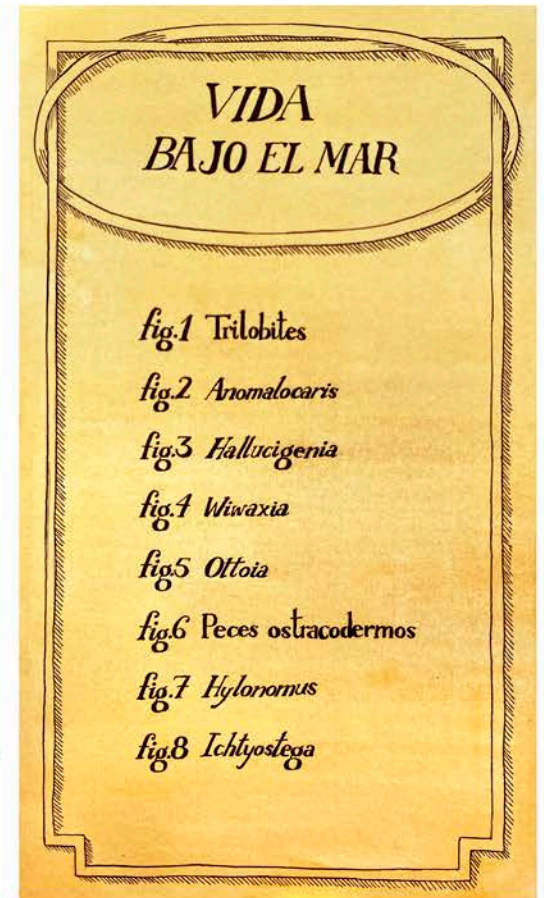 VIDA
BAJO EL MAR
fig.1 Trilobites
fig.2 Anomalocaris
fig.3 Hallucigenia
fig.4 Wiwaxia
fig.5 Ottoia
fig.6 Peces ostracodermos
fig.7 Hylonomus
fig.8 Ichtyostega